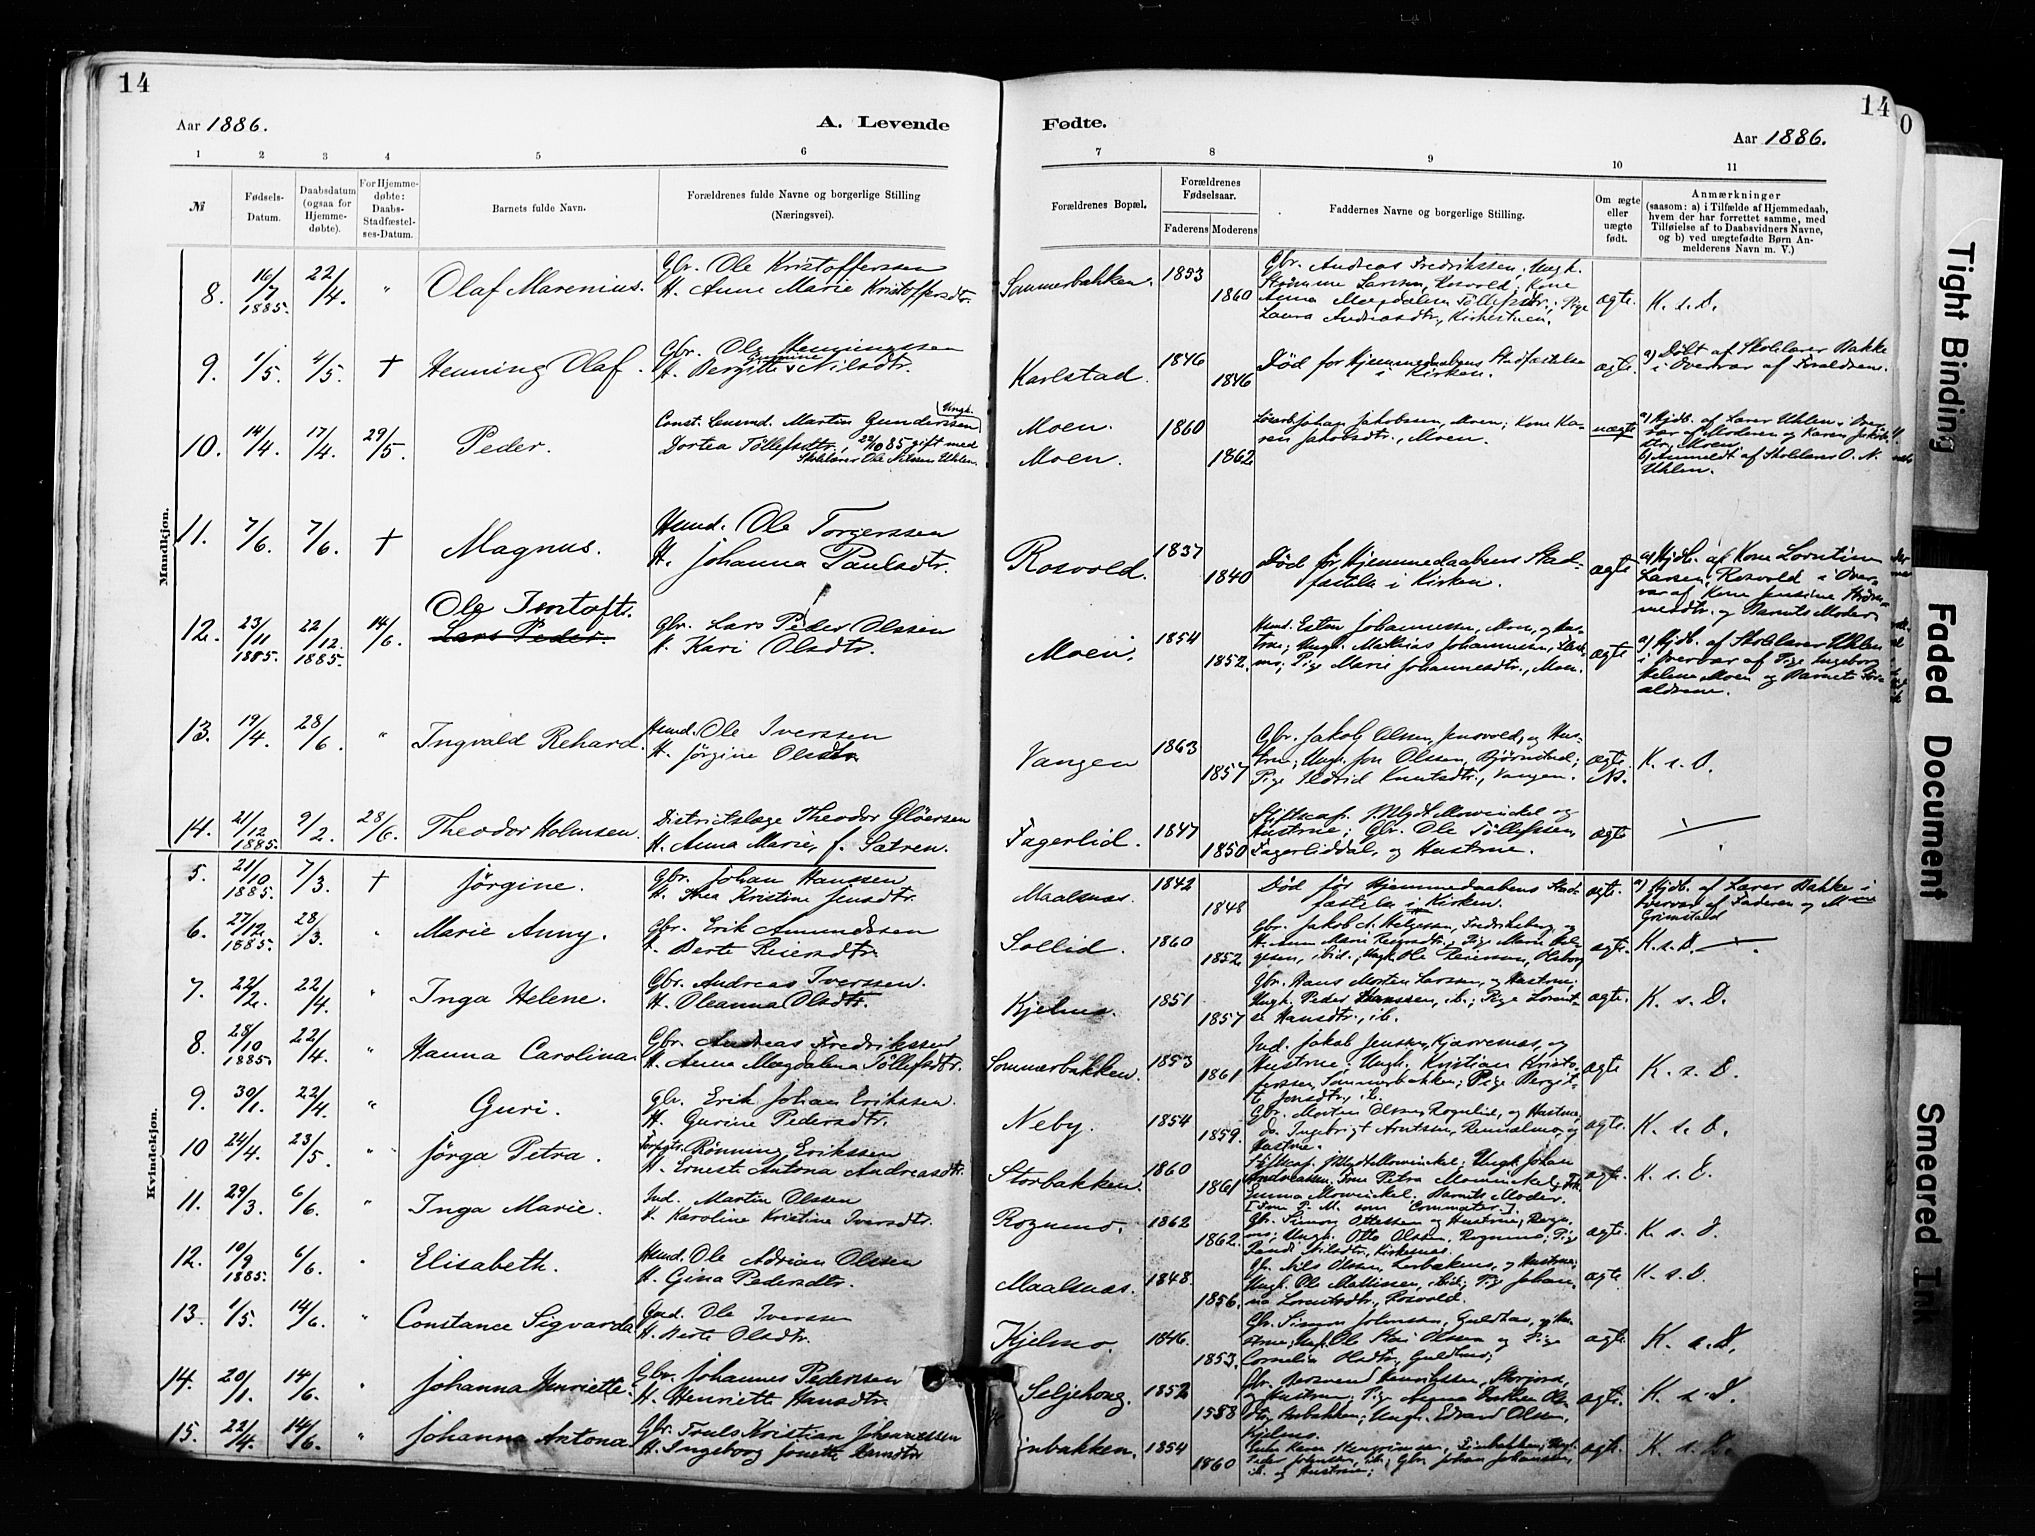 14
14
0
Aar 1886.
A. Levende
Fødte.
Aar 1886.
1 2 3 4 5 6
7 8 9 10 11
№
Fødsels-
Datum.
Daabsdatum
(ogsaa for
Hjemme-
døbte).
For Hjemme-
døbte:
Daabs-
Stadfæstel-
ses-Datum.
Barnets fulde Navn.
Forældrenes fulde Navne og borgerlige Stilling
(Næringsvei).
Forældrenes Bopæl.
Forældrenes
Fødselsaar.
Faderens Moderens
Faddernes Navne og borgerlige Stilling.
Om ægte
eller
uægte
født.
Anmærkninger
(saasom: a) i Tilfælde af Hjemmedaab,
hvem der har forrettet samme, med
Tilføielse af to Daabsvidners Navne,
og b) ved uægtefødte Børn An-
melderens Navn m. V.)
Mandkjøn.
8. 16/7 1885. 22/4. " Olaf Marenius.
Gbr. Ole Kristofferssen
H. Anne Marie Kristoffersdtr.
Sommerbakken. 1853 1860
Gbr. Andreas Fredrikssen; Ungk.
Strømme Larsen, Rosvold; Kone
Anna Magdalena Tøllefsdtr.; Pige
Laura Andreasdtr., Kirkestuen.
ægte. K. s. D.
9. 1/5. 4/5. + Henning Olaf.
Gbr. Ole Henningssen
H. Bergitte Nilsdtr.
Karlstad. 1846 1846
Død før Hjemmedaabens Stadfæstelse
i Kirken.
ægte.
a) Døbt af Skolelærer Bakke
i Overvær af Forældrene.
10. 14/4. 17/4. 29/5. Peder.
Const. Lensmd. Martin Gunderssen Ungk.
Dortea Tøllefsdtr., 22/10 85 gift med
Skolelærer Ole Nilssen Uhlen.
Moen. 1860
Moen. 1862
Johan Jakobssen, Moen; Kone Ka-
ren Jakobsdtr., Moen.
uægte
a) Hjdb. af Lærer Uhlen i Over-
vær af Moderen og Karen Jakobs-
dtr., Moen.
b) Anmeldt af Skolelærer O. N.
Uhlen.
11. 7/6. 7/6. + Magnus.
Hmd. Ole Torgerssen
H. Johanna Paulsdtr.
Rosvold. 1837 1840
Død før Hjemmedaabens Stad-
fæstelse i Kirken.
ægte
a) Hjdb. af Kone Lorntine
Larsen, Rosvold i Over-
vær af Kone Jensine
og Barnets Moder.
12. 23/11 1885. 22/12. 1885. 14/6. Ole Tontoft.
Lars Peder.
Gbr. Lars Peder Olssen
H. Kari Olsdtr.
Moen. 1854 1852.
Hmd. Esten Johannessen, Moen, og Hus-
true; Ungk. Mathias Johannessen,
Pige Marie Johannesdtr., Moen.
ægte
a) Hjdb. af Skolelærer Uhlen
i Overvær af Pige Ingeborg
Helene Moen og Barnets For-
ældrene.
13. 19/4. 28/6. " Ingvald Rehard.
Hmd. Ole Iverssen
H. Jørgine Olsdtr.
Vangen 1863 1857
Gbr. Jakob Olsen, Jensvold, og Hus-
true; Ungk. Jon Olssen, Bjørnstad;
Pige Ildrid Knutsdtr., Vangen.
ægte. K. s. D.
14. 21/12 1885. 9/2. 28/6. Theodor Holmsen.
Districtslæge Theodor Gløersen
H. Anna Marie, f. Sætren.
Fagerlid. 1847 1850
Stiftscap. Mowinckel og
Hustrue; Gbr. Ole Tøllefssen,
Fagerliddal, og Hustrue.
ægte
Kvindekjøn.
5. 21/10 1885. 7/3. + Jørgine.
Gbr. Johan Hanssen
H. Thea Kristine Jensdtr.
Maalsnæs. 1842 1848
Død før Hjemmedaabens Stad-
fæstelse i Kirken.
ægte.
a) Hjdb. af Lærer Bakke i
Overvær af Faderen og
Grimstad
6. 27/12. 1885. 28/3. " Marie Anny.
Gbr. Erik Amundssen
H. Berte Reiersdtr.
Sollid. 1860 1852.
Gbr. Jakob A. Helgessen, Fredriksberg, og
H. Marie Reiersdtr.; Pige Marie Hel-
gesen, ibid.; Ungk. Ole Reierssen, Olsborg
ægte. K. s. D.
7. 22/2. 22/4. " Inga Helene.
Gbr. Andreas Iverssen.
H. Oleanna Olsdtr.
Kjelmo. 1851 1857
Gbr. Hans Morten Larssen, og Hustrue;
Ungk. Peder Hanssen, ib.; Pige Lornt-
se Hansdtr., ib.
ægte. K. s. D.
8. 28/10 1885. 22/4. " Hanna Carolina.
Gbr. Andreas Fredrikssen
H. Anna Magdalena Tøllefsdtr.
Sommerbakken. 1853 1861
Ind. Jakob Jenssen, Kjærresnæs, og
Hustrue; Ungk. Kristian Kristo-
ferssen, Sommerbakken; Pige Bergit-
te Jensdtr., ib.
ægte K. s. D.
9. 30/1. 22/4. " Guri.
Gbr. Erik Johan Erikssen.
H. Gurine Pedersdtr.
Neby. 1854 1859.
Gbr. Morten Olssen, Rognlie, og Hustrue;
do. Ingebrigt Arntsen, og
Hustrue.
ægte. K. s. D.
10 24/4. 23/5. " Jørga Petra.
Rønning Erikssen
H. Ernest Antona Andreasdtr.
Storbakken. 1860 1861
Stiftscap. Mowinckel; Ungk. Johan
Andreassen. Frue Petra Mowinckel, Frk.
Emma Mowinckel. Barnets Moder.
[Frue P. M. som "Commater"].
ægte. K. s. E.
11. 29/3. 6/6. " Inga Marie.
Ind. Martin Olssen
H. Karoline Kristine Iversdtr.
Rognmo. 1862 1862.
Gbr. Simon Ottessen og Hustrue, Rogn-
mo; Ungk. Otto Olssen, Rognmo; Pige
Randi Nilsdtr., Kirkesnæs.
ægte. K. s. D.
12. 10/9 1885. 6/6. " Elisabeth.
Hmd. Ole Adrian Olssen
H. Gina Pedersdtr.
Maalsnæs. 1848. 1856.
Gbr. Nils Olssen, og Hustrue;
Ungk. Ole Mathissen, ibid; Pige Johan-
na Lorntsdtr., Rosvold.
ægte K. s. D.
13. 1/5. 14/6. " Constance Sigvarda
Ole Iverssen
H. Berte Olsdtr.
Kjelmo. 1846. 1853.
Gbr. Simon Johnssen, Guldhav, og Hu-
strue; Ungk. Ole Olssen og Pige
Cornelia Olsdtr., Guldhav;
ægte. K. s. D.
14. 20/1. 14/6. " Johanna Henriette.
Gbr. Johannes Pederssen
H. Henriette Hansdtr.
Seljehoug. 1852 1858
Gbr. Henrikssen,
og Hustrue; Pige Anna Ol-
Ungk. Edvard Olssen,
Kjelmo.
ægte. K. s. D.
15. 22/4. 14/6. " Johanna Antona
Gbr. Truls Kristian Johannessen
H. Ingeborg Jonette
inbakken. 1854 1860
Peder Johnssen, ib.; Gbr. Johan Johanssen,
ib. og Hustrue;
ægte. K. s. D.
Tight Binding
Faded Document
Smeared Ink